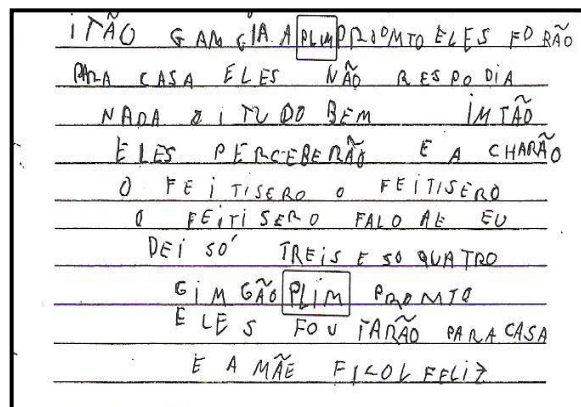 ITÃO GANGIA A PLIM PROMTO ELES FORÃO
PARA CASA ELES NÃO RESPODIA
NADA OI TUDO BEM IMTÃO
ELES PERCEBERÃO E A CHARÃO
O FEITISERO O FEITISERO
O FEITISERO FALO AE EU
DEI SÓ TREIS E SO QUATRO
GIMGÃO PLIM PROMTO
ELES FOUTARÃO PARA CASA
E A MÃE FICOL FELIZ